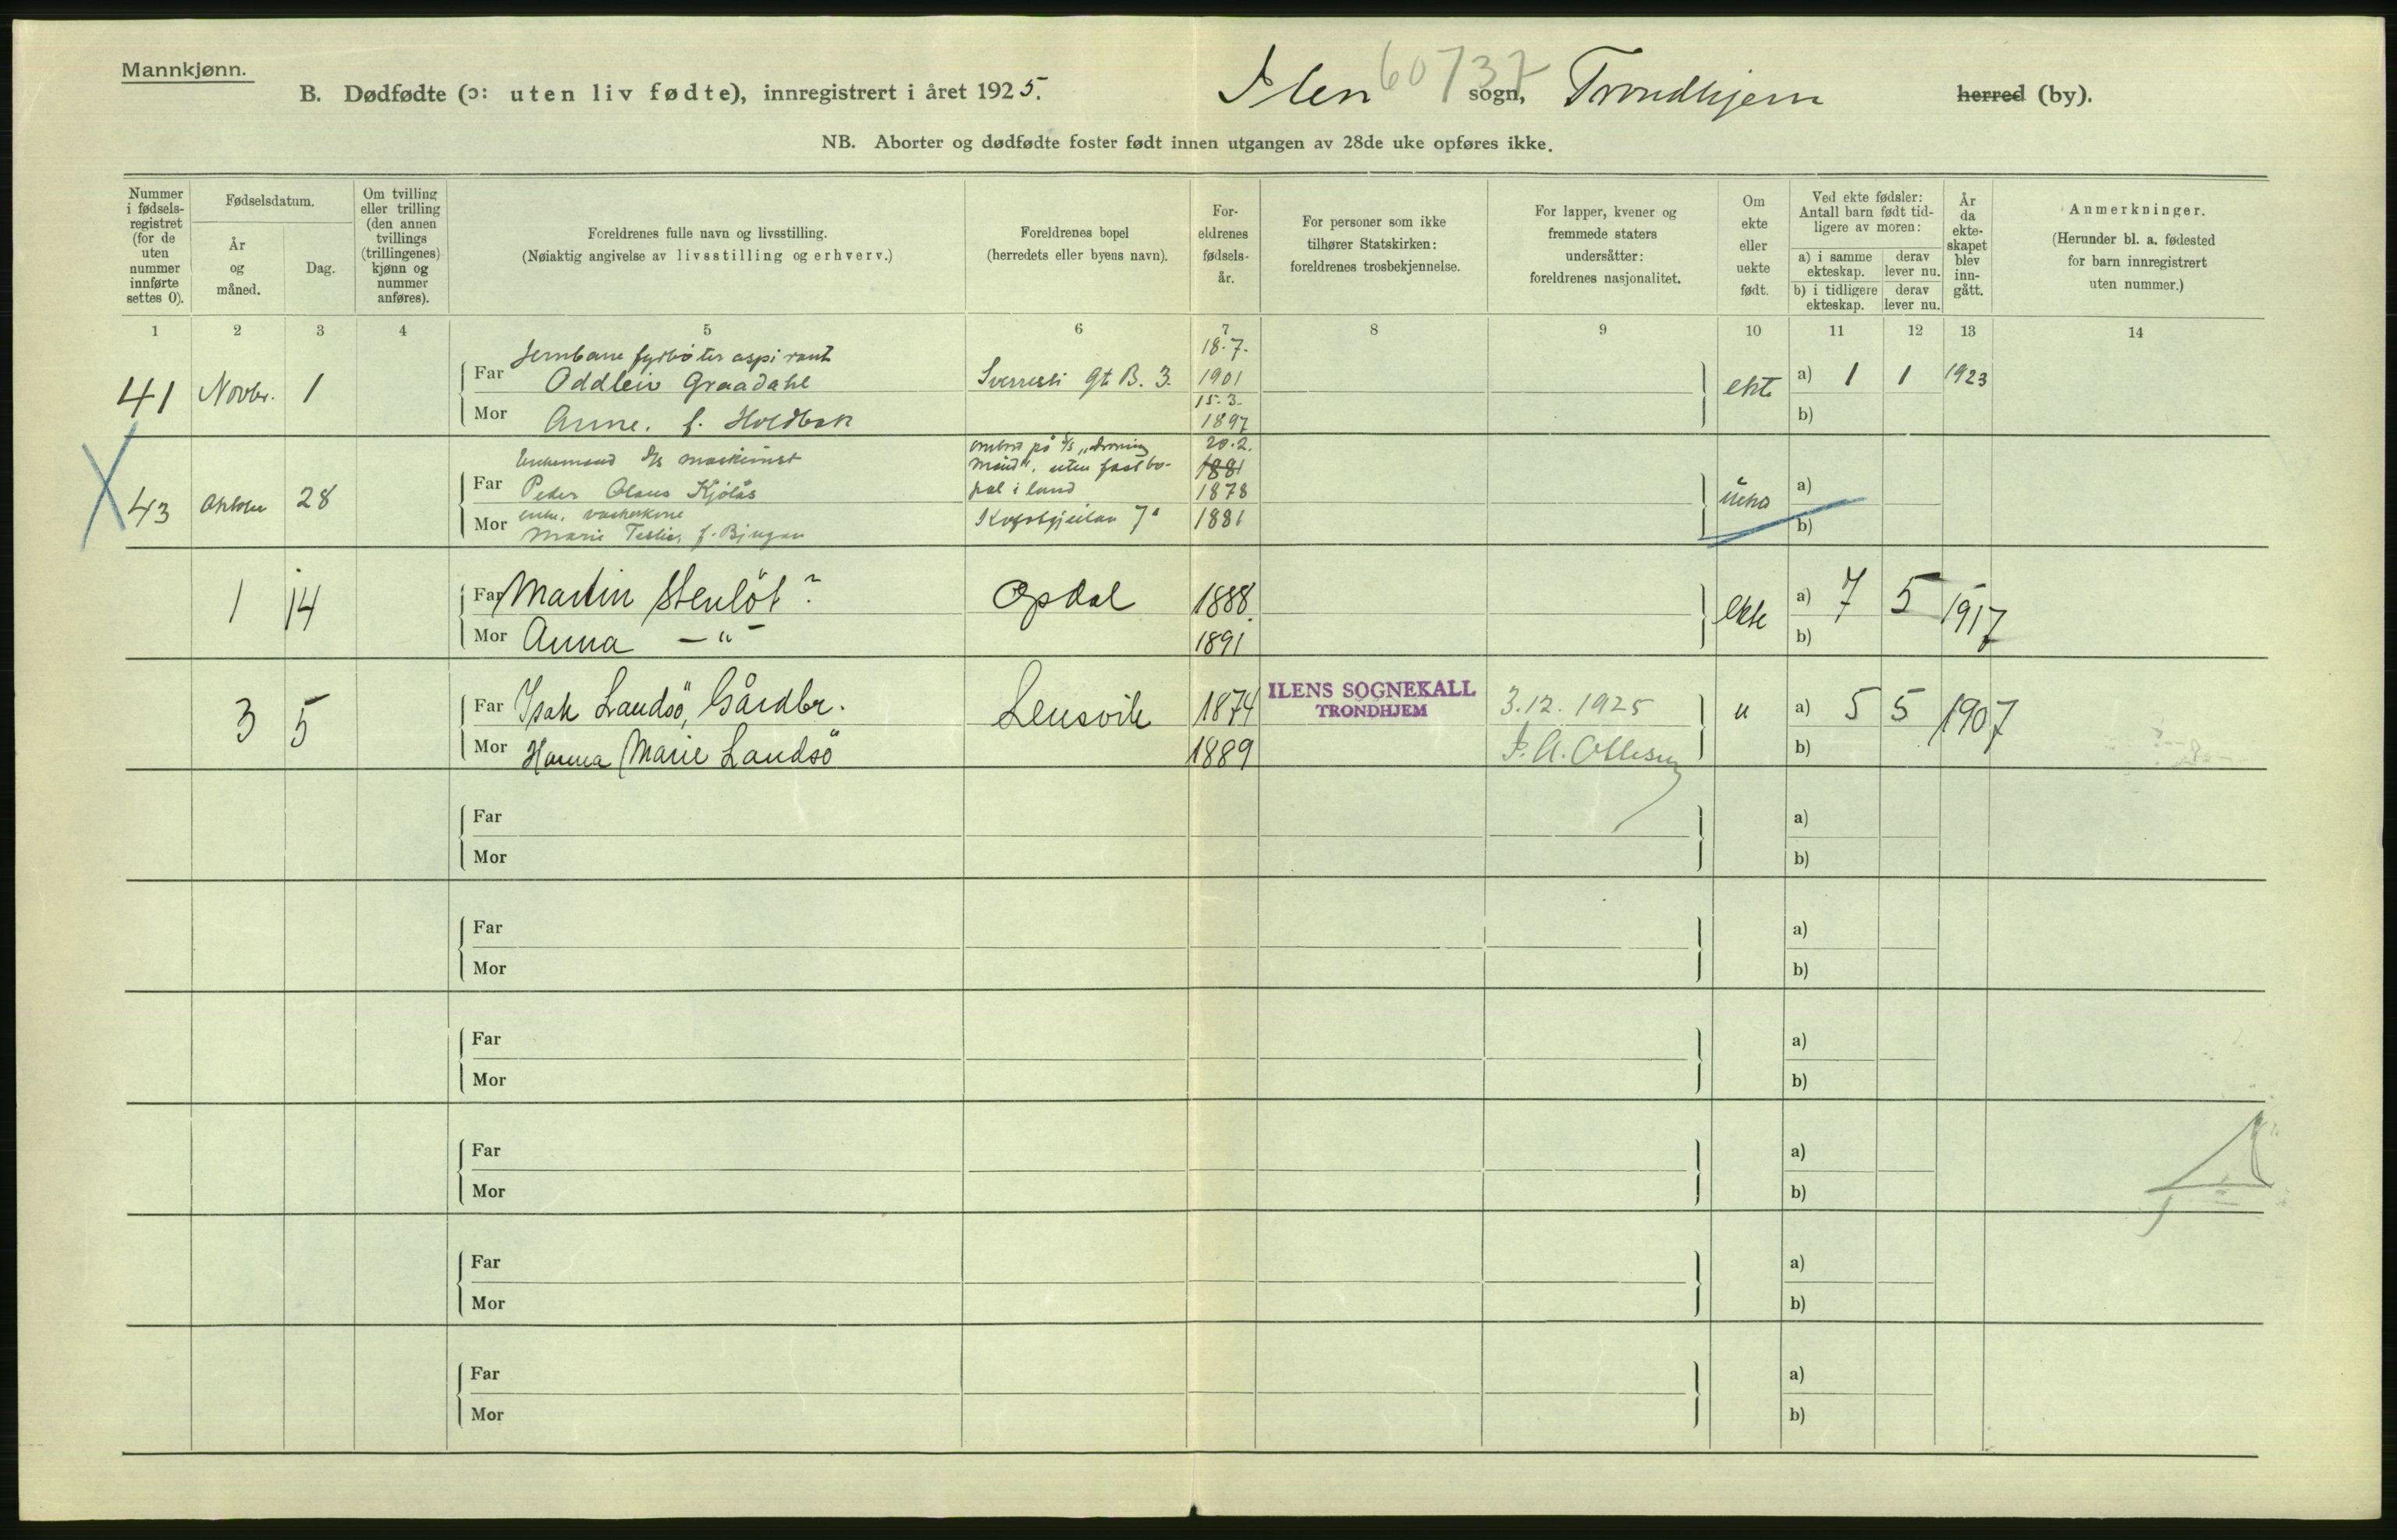 Mannkjønn.
B. Dødfødte (ɔ: uten liv fødte), innregistrert i året 1925. Ilen sogn, Trondhjem herred (by).
60737
NB. Aborter og dødfødte foster født innen utgangen av 28de uke opføres ikke.
Nummer i fødsels-registret (for de uten nummer innførte settes 0).
Fødselsdatum.
År og måned.
Dag.
Om tvilling eller trilling (den annen tvillings (trillingenes) kjønn og nummer anføres).
Foreldrenes fulle navn og livsstilling.
(Nøiaktig angivelse av livsstilling og erhverv.)
Foreldrenes bopel
(herredets eller byens navn).
For-eldrenes fødsels-år.
For personer som ikke tilhører Statskirken: foreldrenes trosbekjennelse.
For lapper, kvener og fremmede staters undersåtter: foreldrenes nasjonalitet.
Om ekte eller uekte født.
Ved ekte fødsler: Antall barn født tid-ligere av moren:
a) i samme ekteskap.
derav lever nu.
b) i tidligere ekteskap.
derav lever nu.
År da ekte-skapet blev inn-gått.
Anmerkninger.
(Herunder bl. a. fødested for barn innregistrert uten nummer.)
1 2 3 4 5 6 7 8 9 10 11 12 13 14
Jernbane fyrbøter aspirant 18.7.
41 Novbr. 1 Far Oddleiv Graadahl Sverresli gt B. 3. 1901 ekte a) 1 1 1923
15.3.
Mor Anne. f. Holdbak 1897 b)
Enkemand maskinist ombord på 20.2.
uten fast bo- 1881
43 28 Far Peder Olaus Kjølås pæl i land 1878 a)
enke
Mor Marie f. Bjugan 7a 1881 b)
1 14 Far Martin Stenlöt? Opdal 1888 ekte a) 7 5 1917
Mor Anna — " — 1891 b)
ILENS SOGNEKALL
TRONDHJEM
3 5 Far Isak Landsö, Gårdbr. Lensvik 1874 3.12.1925 u a) 5 5 1907
Mor Hanna Marie Landsö 1889 b)
Far a)
Mor b)
Far a)
Mor b)
Far a)
Mor b)
Far a)
Mor b)
Far a)
Mor b)
Far a)
Mor b)